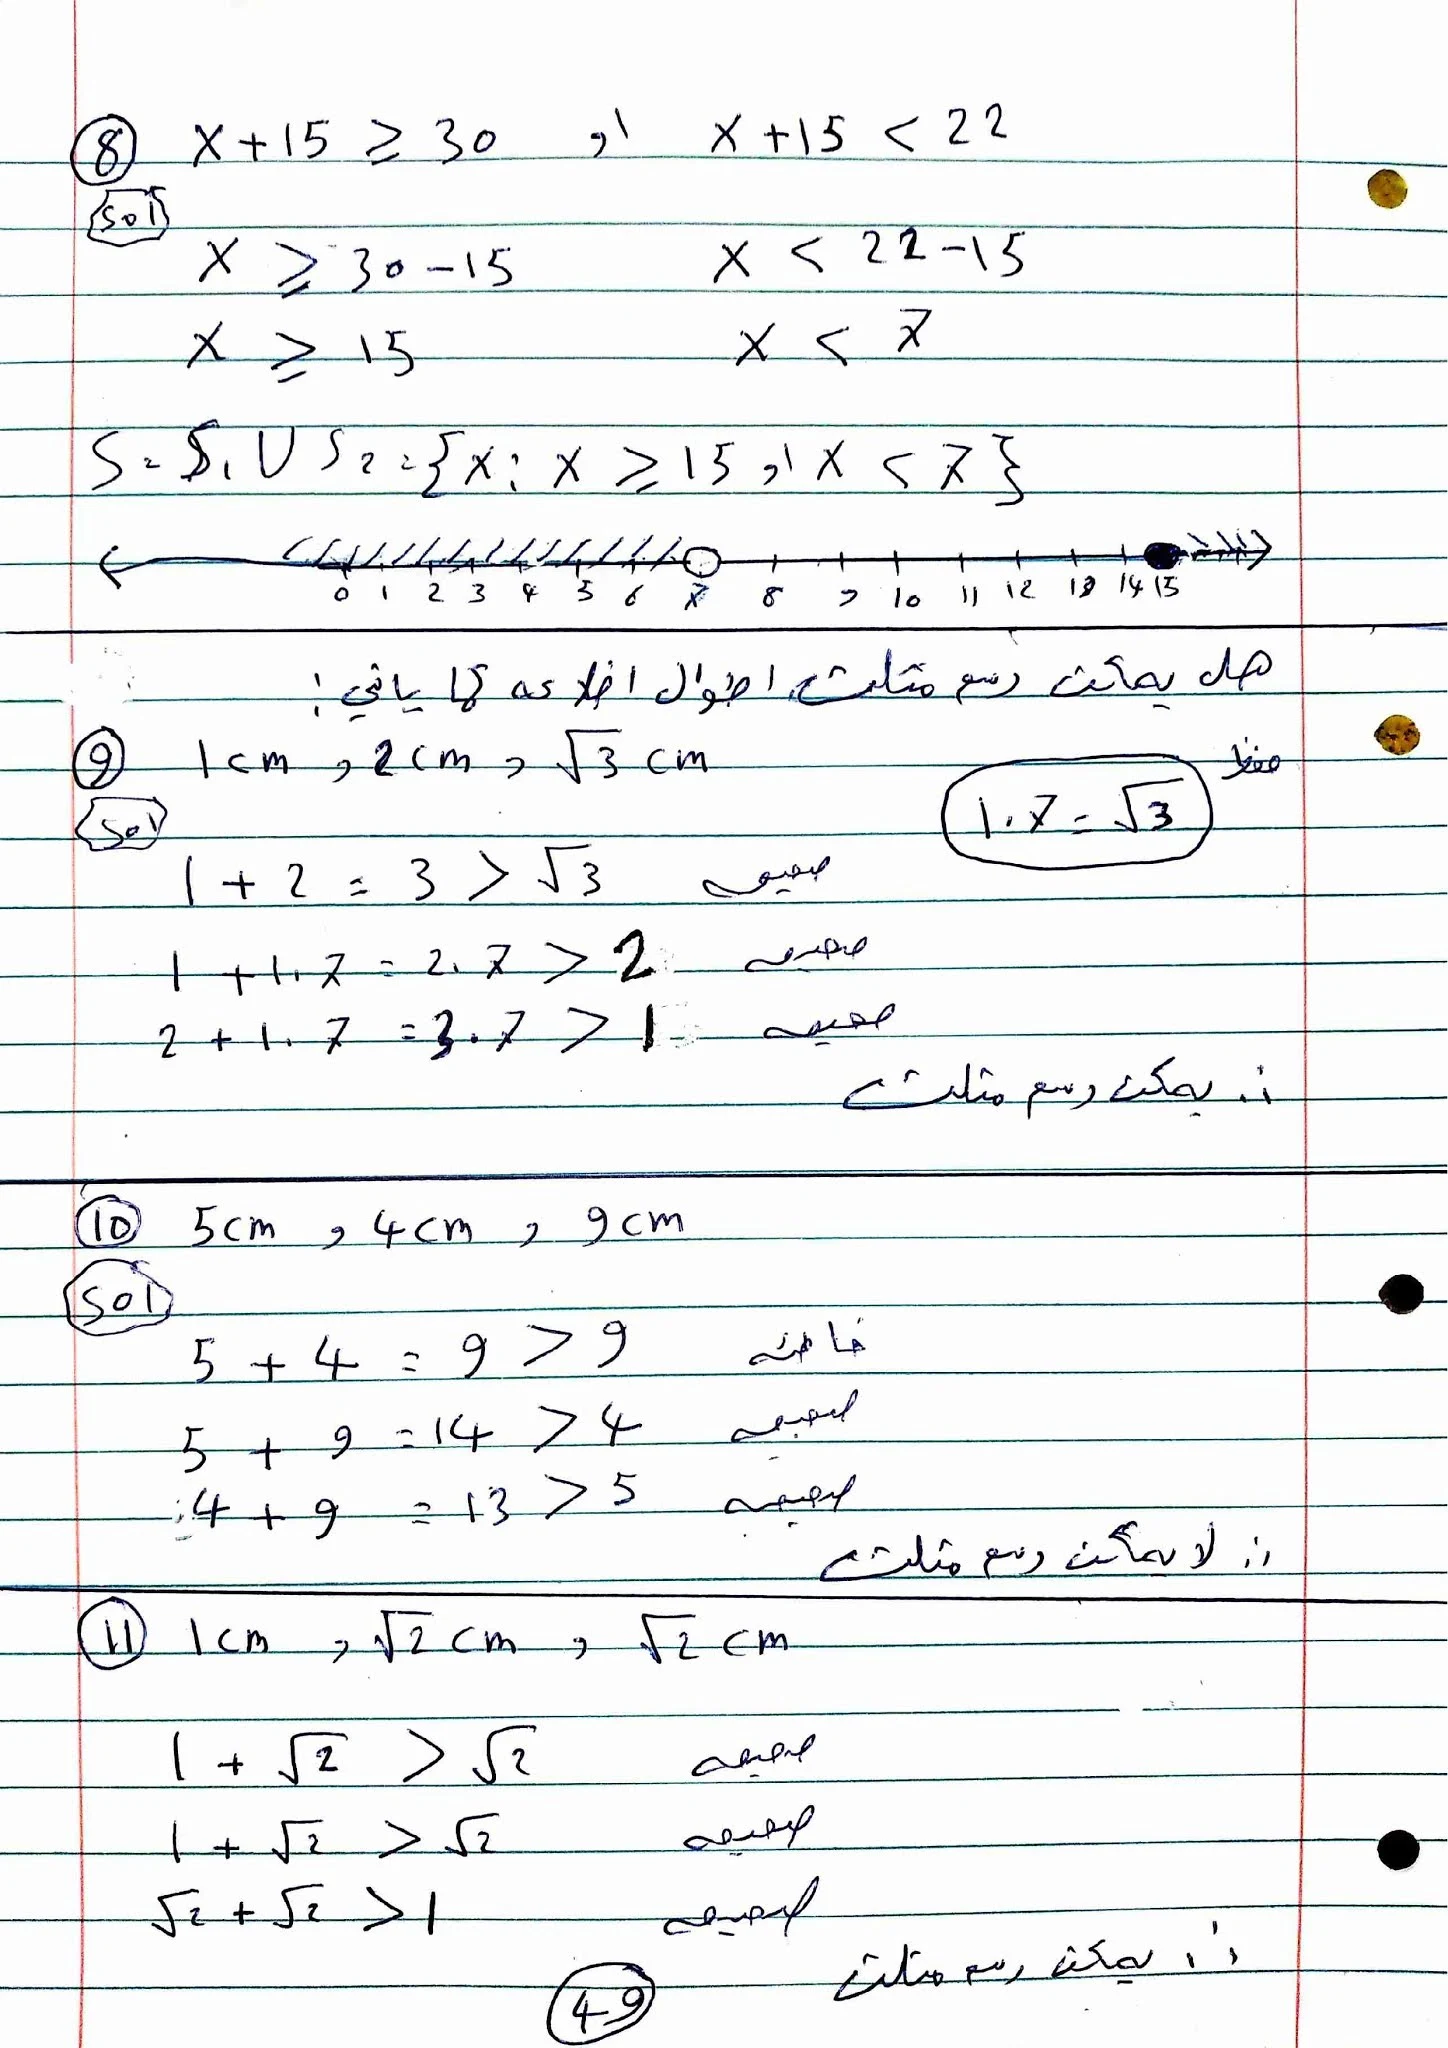 8 x + 15 ≥ 30 او x + 15 < 22
Sol
x ≥ 30 - 15 x < 22 - 15
x ≥ 15 x < 7
S = S₁ ∪ S₂ = {x : x ≥ 15 او x < 7}
0 1 2 3 4 5 6 7 8 9 10 11 12 13 14 15
هل يمكن رسم مثلث اطوال اضلاعه كما ياتي :
9 1 cm , 2 cm , √3 cm
حفظ
1.7 = √3
Sol
1 + 2 = 3 > √3 صحيحه
1 + 1.7 = 2.7 > 2 صحيحه
2 + 1.7 = 3.7 > 1 صحيحه
∴ يمكن رسم مثلث
10 5 cm , 4 cm , 9 cm
Sol
5 + 4 = 9 > 9 خاطئه
5 + 9 = 14 > 4 صحيحه
4 + 9 = 13 > 5 صحيحه
∴ لا يمكن رسم مثلث
11 1 cm , √2 cm , √2 cm
1 + √2 > √2 صحيحه
1 + √2 > √2 صحيحه
√2 + √2 > 1 صحيحه
∴ يمكن رسم مثلث
49